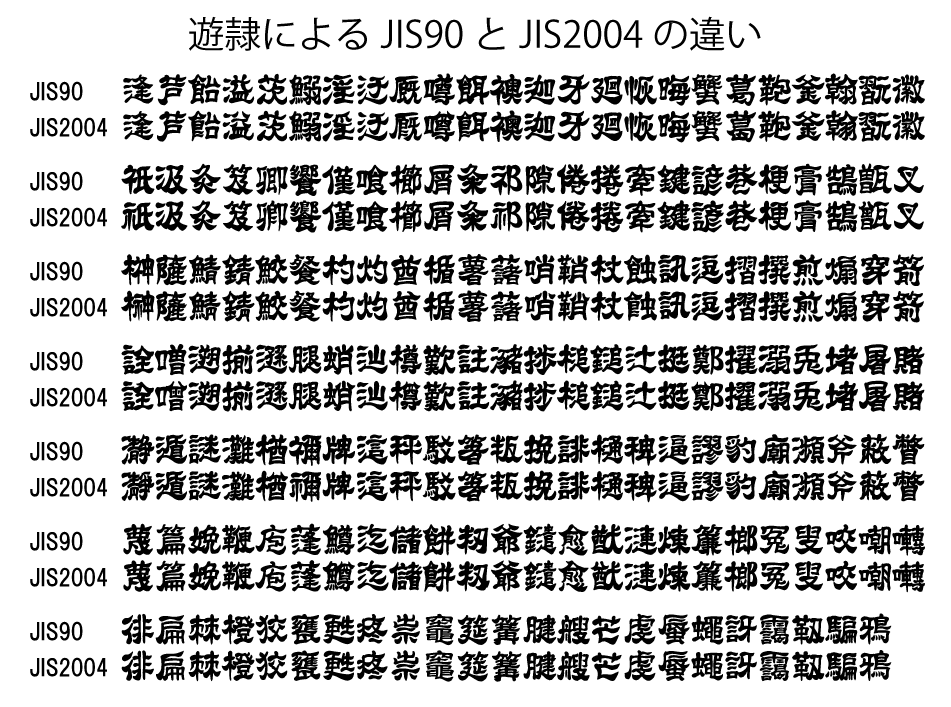 遊隷による JIS90 と JIS2004 の違い
JIS90 逢芦飴溢茨鰯淫迂厩噂餌襖迦牙廻恢晦蟹葛鞄釜翰翫徽
JIS2004 逢芦飴溢茨鰯淫迂厩噂餌襖迦牙廻恢晦蟹葛鞄釜翰翫徽
JIS90 祇汲灸笈卿饗僅喰櫛屑粂祁隙倦捲牽鍵諺巷梗膏鵠甑叉
JIS2004 祇汲灸笈卿饗僅喰櫛屑粂祁隙倦捲牽鍵諺巷梗膏鵠甑叉
JIS90 榊薩鯖錆鮫餐杓灼酋楯薯藷哨鞘杖蝕訊逗摺撰煎煽穿箭
JIS2004 榊薩鯖錆鮫餐杓灼酋楯薯藷哨鞘杖蝕訊逗摺撰煎煽穿箭
JIS90 詮噌遡揃遜腿蛸辿樽歎註瀦捗槌鎚辻挺鄭擢溺兎堵屠賭
JIS2004 詮噌遡揃遜腿蛸辿樽歎註瀦捗槌鎚辻挺鄭擢溺兎堵屠賭
JIS90 瀞遁謎灘楢禰牌這秤駁箸叛挽誹樋稗逼謬豹廟瀕斧蔽瞥
JIS2004 瀞遁謎灘楢禰牌這秤駁箸叛挽誹樋稗逼謬豹廟瀕斧蔽瞥
JIS90 蔑篇娩鞭庖蓬鱒迄儲餅籾爺鑓愈猷漣煉簾榔冤叟咬嘲囀
JIS2004 蔑篇娩鞭庖蓬鱒迄儲餅籾爺鑓愈猷漣煉簾榔冤叟咬嘲囀
JIS90 徘扁棘橙狡甕甦疼祟竈筵篝腱艘芒虔蜃蠅訝靄靱騙鴉
JIS2004 徘扁棘橙狡甕甦疼祟竈筵篝腱艘芒虔蜃蠅訝靄靱騙鴉